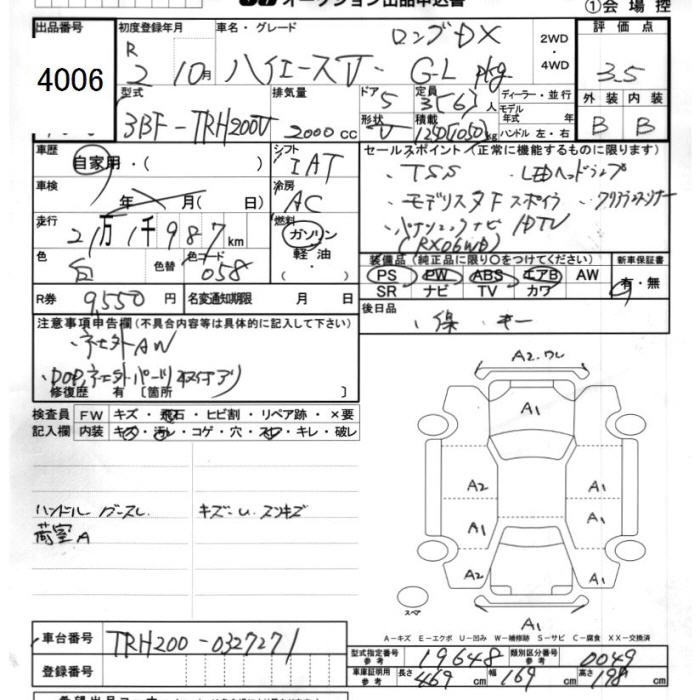 オークション出品申込書
①会場控
出品番号 初度登録年月 車名・グレード 評価点
4006
R 2 10月 ハイエースV・ ロングDX GL pkg 2WD・4WD 3.5
型式 排気量 ドア 5 定員 3(6)人 ディーラー・並行
3BF-TRH200V 2000cc 形状 V 積載 1250(1050)kg モデル年式 年 ハンドル 左・右
外装 内装
B B
車歴 自家用・( ) シフト IAT
セールスポイント(正常に機能するものに限ります)
・TSS ・LEDヘッドランプ
・モデリスタFスポイラ ・クリアランスソナー
・パナソニックナビ 地DTV
(RX06WD)
車検 年 月( 日) 冷房 AC
走行 2万1千987km 燃料 ガソリン・軽油・( )
色 白 色替 色コード 058
装備品(純正品に限り○をつけてください) 新車保証書
PS PW ABS エアB AW 有・無
SR ナビ TV カワ
R券 9,550円 名変通知期限 月 日
後日品 ・保 ・キー
注意事項申告欄(不具合内容等は具体的に記入して下さい)
・社外AW
・DOP、社外パーツ取付アリ
修復歴 有 [箇所 ]
検査員 FW キズ・飛石・ヒビ割・リペア跡・×要
記入欄 内装 キズ・汚れ・コゲ・穴・スレ・キレ・破レ
ハンドル グースレ キズ・U.スンキズ
荷室A
A2.ワレ
A1
A2 A1
A1 A1
A2 A1 A1
A1
スペア
A-キズ E-エクボ U-凹み W-補修跡 S-サビ C-腐食 XX-交換済
車台番号 TRH200-0327271
型式指定番号 参考 19648 類別区分番号 参考 0049
登録番号
車庫証明用 参考 長さ 469cm 幅 169cm 高さ 198cm
希望出品コーナー